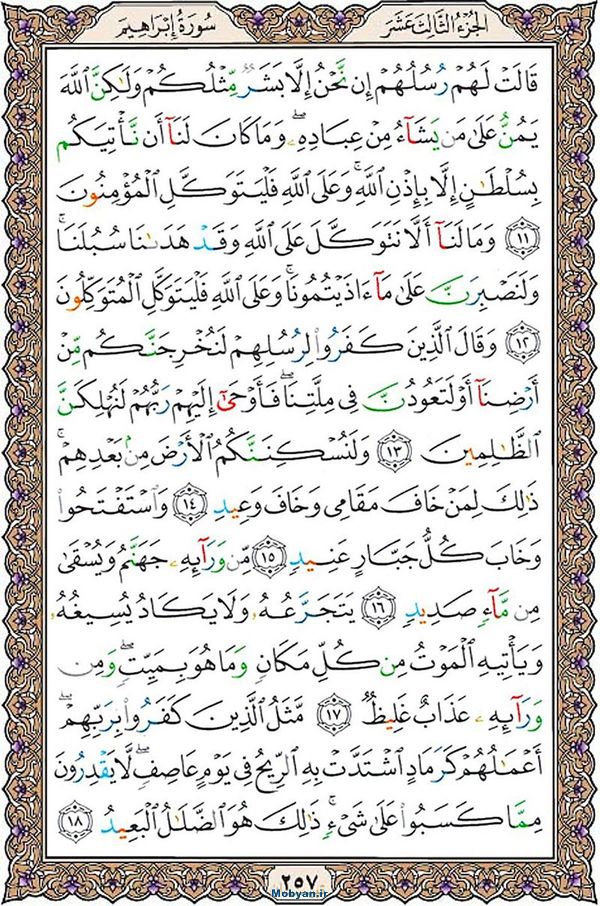 الجزء الثالث عشر
سورة إبراهيم
قَالَتْ لَهُمْ رُسُلُهُمْ إِن نَّحْنُ إِلَّا بَشَرٌ مِّثْلُكُمْ وَلَـٰكِنَّ ٱللَّهَ
يَمُنُّ عَلَىٰ مَن يَشَآءُ مِنْ عِبَادِهِۦ ۖ وَمَا كَانَ لَنَآ أَن نَّأْتِيَكُم
بِسُلْطَـٰنٍ إِلَّا بِإِذْنِ ٱللَّهِ ۚ وَعَلَى ٱللَّهِ فَلْيَتَوَكَّلِ ٱلْمُؤْمِنُونَ
﴿١١﴾ وَمَا لَنَآ أَلَّا نَتَوَكَّلَ عَلَى ٱللَّهِ وَقَدْ هَدَىٰنَا سُبُلَنَا ۚ
وَلَنَصْبِرَنَّ عَلَىٰ مَآ ءَاذَيْتُمُونَا ۚ وَعَلَى ٱللَّهِ فَلْيَتَوَكَّلِ ٱلْمُتَوَكِّلُونَ
﴿١٢﴾ وَقَالَ ٱلَّذِينَ كَفَرُوا۟ لِرُسُلِهِمْ لَنُخْرِجَنَّكُم مِّنْ
أَرْضِنَآ أَوْ لَتَعُودُنَّ فِى مِلَّتِنَا ۖ فَأَوْحَىٰٓ إِلَيْهِمْ رَبُّهُمْ لَنُهْلِكَنَّ
ٱلظَّـٰلِمِينَ ﴿١٣﴾ وَلَنُسْكِنَنَّكُمُ ٱلْأَرْضَ مِنۢ بَعْدِهِمْ ۚ
ذَٰلِكَ لِمَنْ خَافَ مَقَامِى وَخَافَ وَعِيدِ ﴿١٤﴾ وَٱسْتَفْتَحُوا۟
وَخَابَ كُلُّ جَبَّارٍ عَنِيدٍ ﴿١٥﴾ مِّن وَرَآئِهِۦ جَهَنَّمُ وَيُسْقَىٰ
مِن مَّآءٍ صَدِيدٍ ﴿١٦﴾ يَتَجَرَّعُهُۥ وَلَا يَكَادُ يُسِيغُهُۥ
وَيَأْتِيهِ ٱلْمَوْتُ مِن كُلِّ مَكَانٍ وَمَا هُوَ بِمَيِّتٍ ۖ وَمِن
وَرَآئِهِۦ عَذَابٌ غَلِيظٌ ﴿١٧﴾ مَّثَلُ ٱلَّذِينَ كَفَرُوا۟ بِرَبِّهِمْ ۖ
أَعْمَـٰلُهُمْ كَرَمَادٍ ٱشْتَدَّتْ بِهِ ٱلرِّيحُ فِى يَوْمٍ عَاصِفٍ ۖ لَّا يَقْدِرُونَ
مِمَّا كَسَبُوا۟ عَلَىٰ شَىْءٍ ۚ ذَٰلِكَ هُوَ ٱلضَّلَـٰلُ ٱلْبَعِيدُ ﴿١٨﴾
٢٥٧
Mobyan.ir